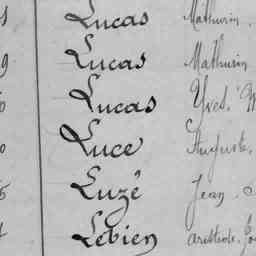 Lucas Mathurin.
9 Lucas Mathurin
Lucas Yves.
Luce Auguste.
Luzé Jean.
Lebien Aristide.